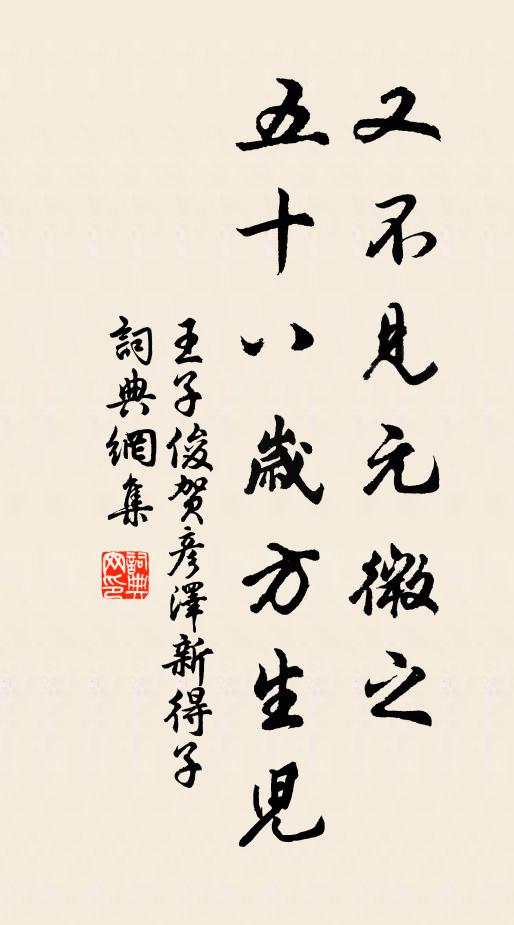 又不見元微之
五十八歲方生兒
王子俊賀彥澤新得子
詞典網集
詞典網印